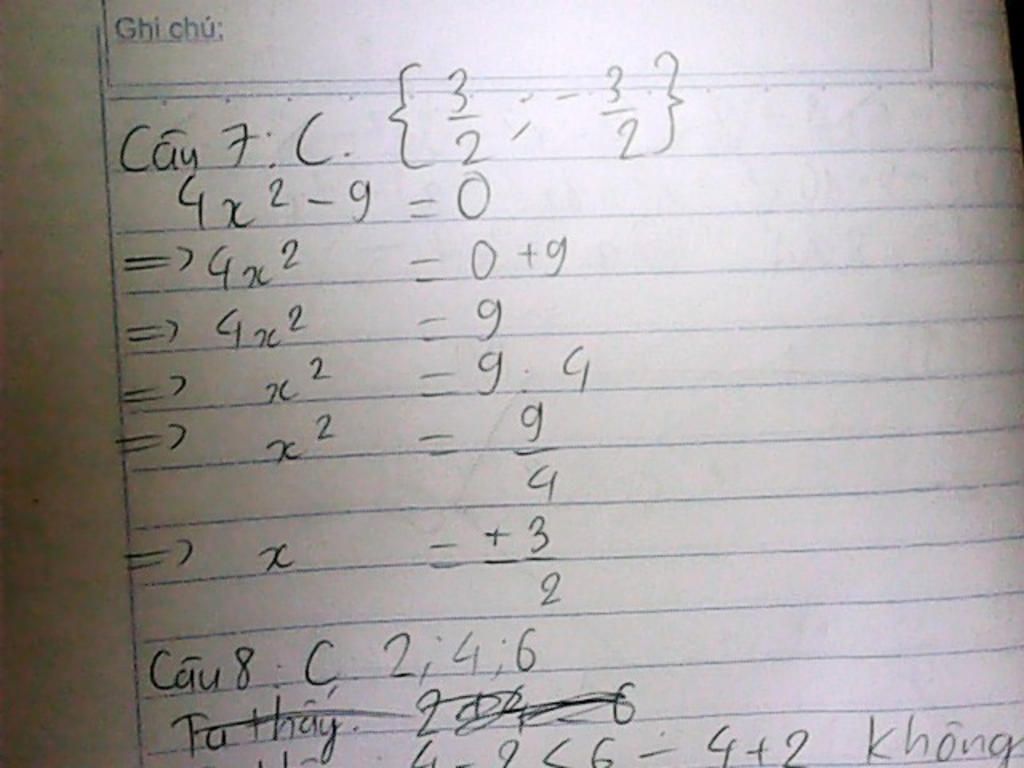 Ghi chú:
Câu 7: C. { 3/2 ; - 3/2 }
4x² - 9 = 0
=> 4x² = 0 + 9
=> 4x² = 9
=> x² = 9 : 4
=> x² = 9/4
=> x = ± 3/2
Câu 8: C, 2; 4; 6
Ta thấy.
4 - 2 < 6 = 4 + 2 không